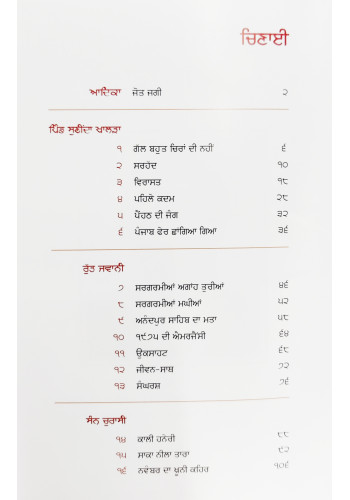 ਚਿਣਾਈ
ਆਦਿਕਾ ਜੋਤ ਜਗੀ ੨
ਪਿੰਡ ਸੁਣੀਂਦਾ ਖਾਲੜਾ
੧ ਗੱਲ ਬਹੁਤ ਚਿਰਾਂ ਦੀ ਨਹੀਂ ੬
੨ ਸਰਹੱਦ ੧੦
੩ ਵਿਰਾਸਤ ੧੮
੪ ਪਹਿਲੇ ਕਦਮ ੨੮
੫ ਪੈਂਹਠ ਦੀ ਜੰਗ ੩੨
੬ ਪੰਜਾਬ ਫੇਰ ਛਾਂਗਿਆ ਗਿਆ ੩੬
ਰੁੱਤ ਜਵਾਨੀ
੭ ਸਰਗਰਮੀਆਂ ਅਗਾਂਹ ਤੁਰੀਆਂ ੪੬
੮ ਸਰਗਰਮੀਆਂ ਮਘੀਆਂ ੫੨
੯ ਅਨੰਦਪੁਰ ਸਾਹਿਬ ਦਾ ਮਤਾ ੫੮
੧੦ ੧੯੭੫ ਦੀ ਐਮਰਜੈਂਸੀ ੬੪
੧੧ ਉਕਸਾਹਟ ੬੮
੧੨ ਜੀਵਨ-ਸਾਥ ੭੨
੧੩ ਸੰਘਰਸ਼ ੭੬
ਸੰਨ ਚੁਰਾਸੀ
੧੪ ਕਾਲੀ ਹਨੇਰੀ ੮੮
੧੫ ਸਾਕਾ ਨੀਲਾ ਤਾਰਾ ੯੨
੧੬ ਨਵੰਬਰ ਦਾ ਖ਼ੂਨੀ ਕਹਿਰ ੧੦੬